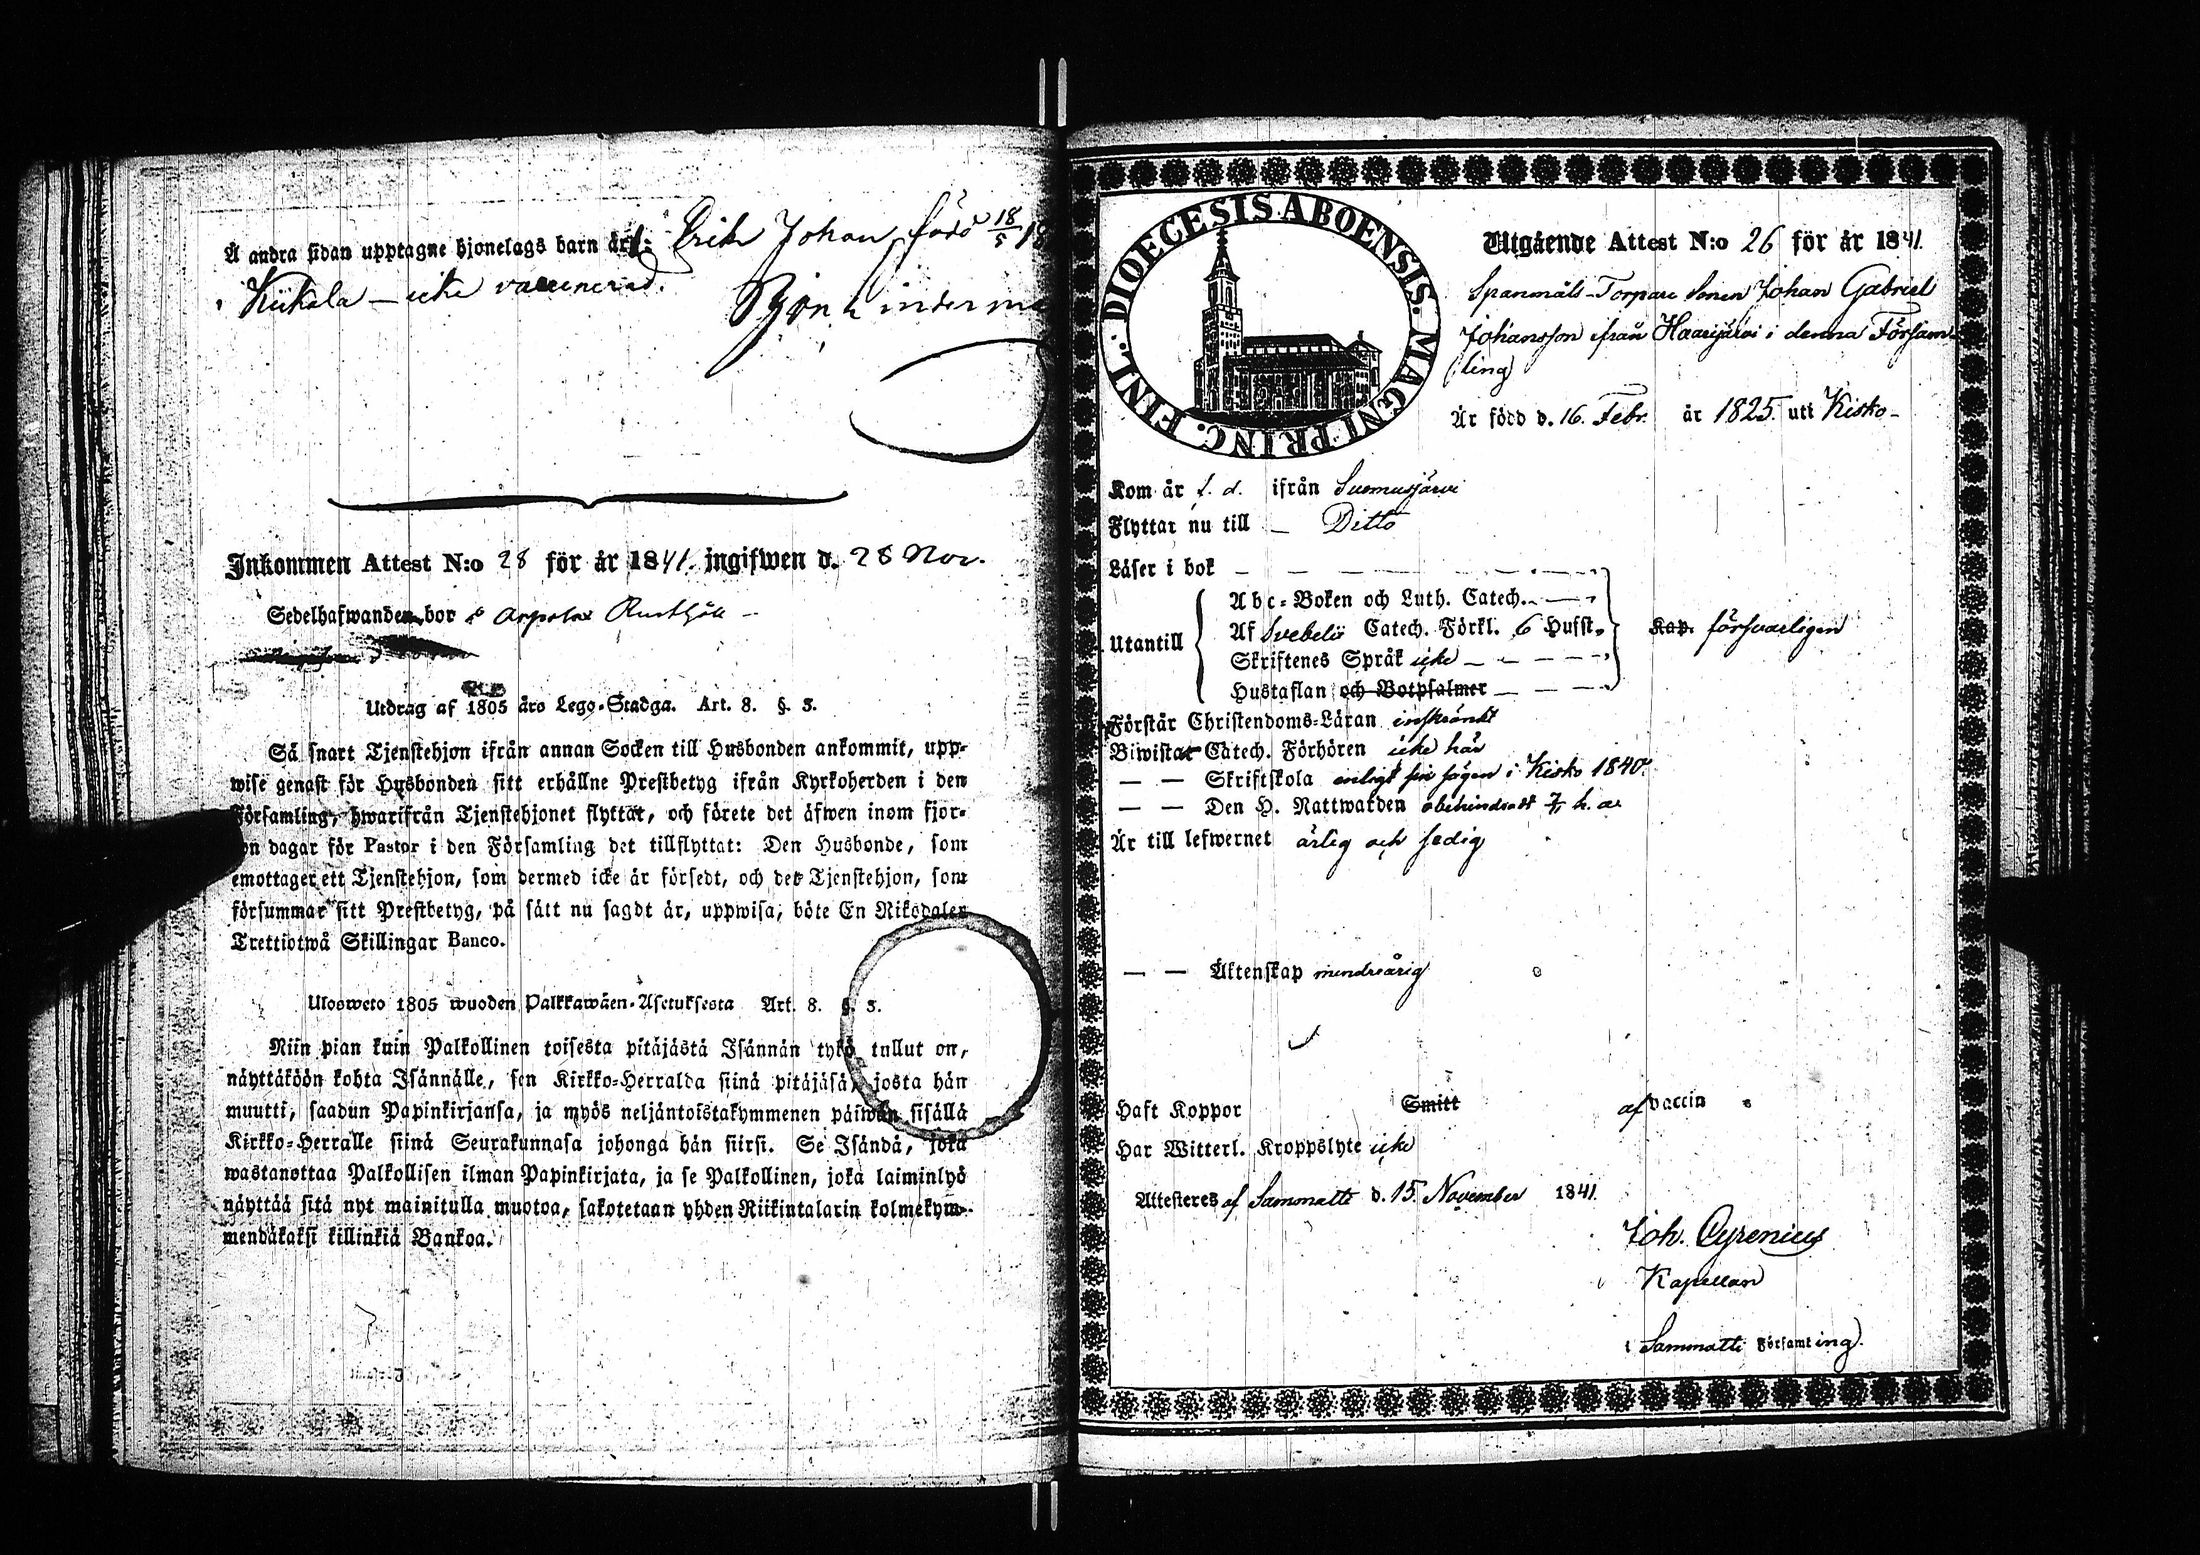 Å andra sidan upptagne hjonelags barn är: Erik Johan född 18/5 18
Kiikala – icke vaccinerad.
Inkommen Attest N:o 28 för år 1841. ingifwen d. 28 Nov.
Sedelhafwanden bor
Utdrag af 1805 åro Lego-Stadga. Art. 8. §. 3.
Så snart Tjenstehjon ifrån annan Socken till Husbonden ankommit, upp-
wise genast för Husbonden sitt erhållne Prestbetyg ifrån Kyrkoherden i den
Församling, hwarifrån Tjenstehjonet flyttat, och förete det äfwen inom fjor-
on dagar för Pastor i den Församling det tillflyttat: Den Husbonde, som
emottager ett Tjenstehjon, som dermed icke är försedt, och det Tjenstehjon, som
försummar sitt Prestbetyg, på sätt nu sagdt är, uppwisa, böte En Riksdaler
Trettiotwå Skillingar Banco.
Ulosweto 1805 wuoden Palkkawäen-Asetuksesta Art. 8. §. 3.
Niin pian kuin Palkollinen toisesta pitäjästä Isännän tykö tullut on,
näyttäköön kohta Isännälle, sen Kirkko-Herralda siinä pitäjäsä, josta hän
muutti, saadun Papinkirjansa, ja myös neljäntoistakymmenen päiwän sisällä
Kirkko-Herralle siinä Seurakunnasa johonga hän siirsi. Se Isändä, joka
wastanottaa Palkollisen ilman Papinkirjata, ja se Palkollinen, joka laiminlyö
näyttää sitä nyt mainitulla muotoa, sakotetaan yhden Riikintalarin kolmekym-
mendäkaksi killinkiä Bankoa.
DIOECESIS ABOENSIS. MAGNI PRINC. FINL.
Utgående Attest N:o 26 för år 1841.
Spanmåls-Torpare Sonen Johan Gabriel
Johansson ifrån Haarijärvi i denna Försam-
ling
Är född d. 16. Febr. år 1825. uti Kisko-
Kom år f. d. ifrån Suomusjärvi
Flyttar nu till – Ditto
Läser i bok
Utantill
Abc-Boken och Luth. Catech.
Af Svebelii Catech. Förkl. 6 Hufst. Kap. försvarligen
Skriftenes Språk icke
Hustaflan och Botpsalmer
Förstår Christendoms-Läran inskränkt
Biwistat Catech. Förhören icke här
– – Skriftskola enligt sin sägen i Kisko 1840.
– – Den H. Nattwarden obehindradt h. a.
Är till lefwernet ärlig och sedig
– – Äktenskap mindreårig
Haft Koppor Smitt af vaccin
Har Witterl. Kroppslyte icke
Attesteres af Sammatti d. 15. November 1841.
Joh. Cyrenius
Kapellan
i Sammatti Församling.